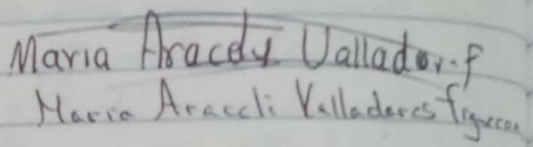 Maria Aracely Vallador.f
Maria Araceli Valladares figueroa